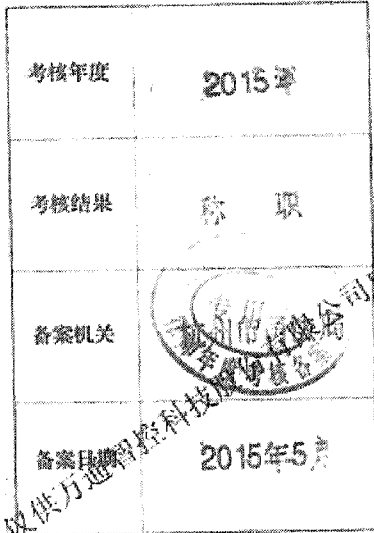 考核年度 2015年
考核结果 称 职
备案机关
年度考核备案
备案日期 2015年5月
仅供万通智控科技股份有限公司